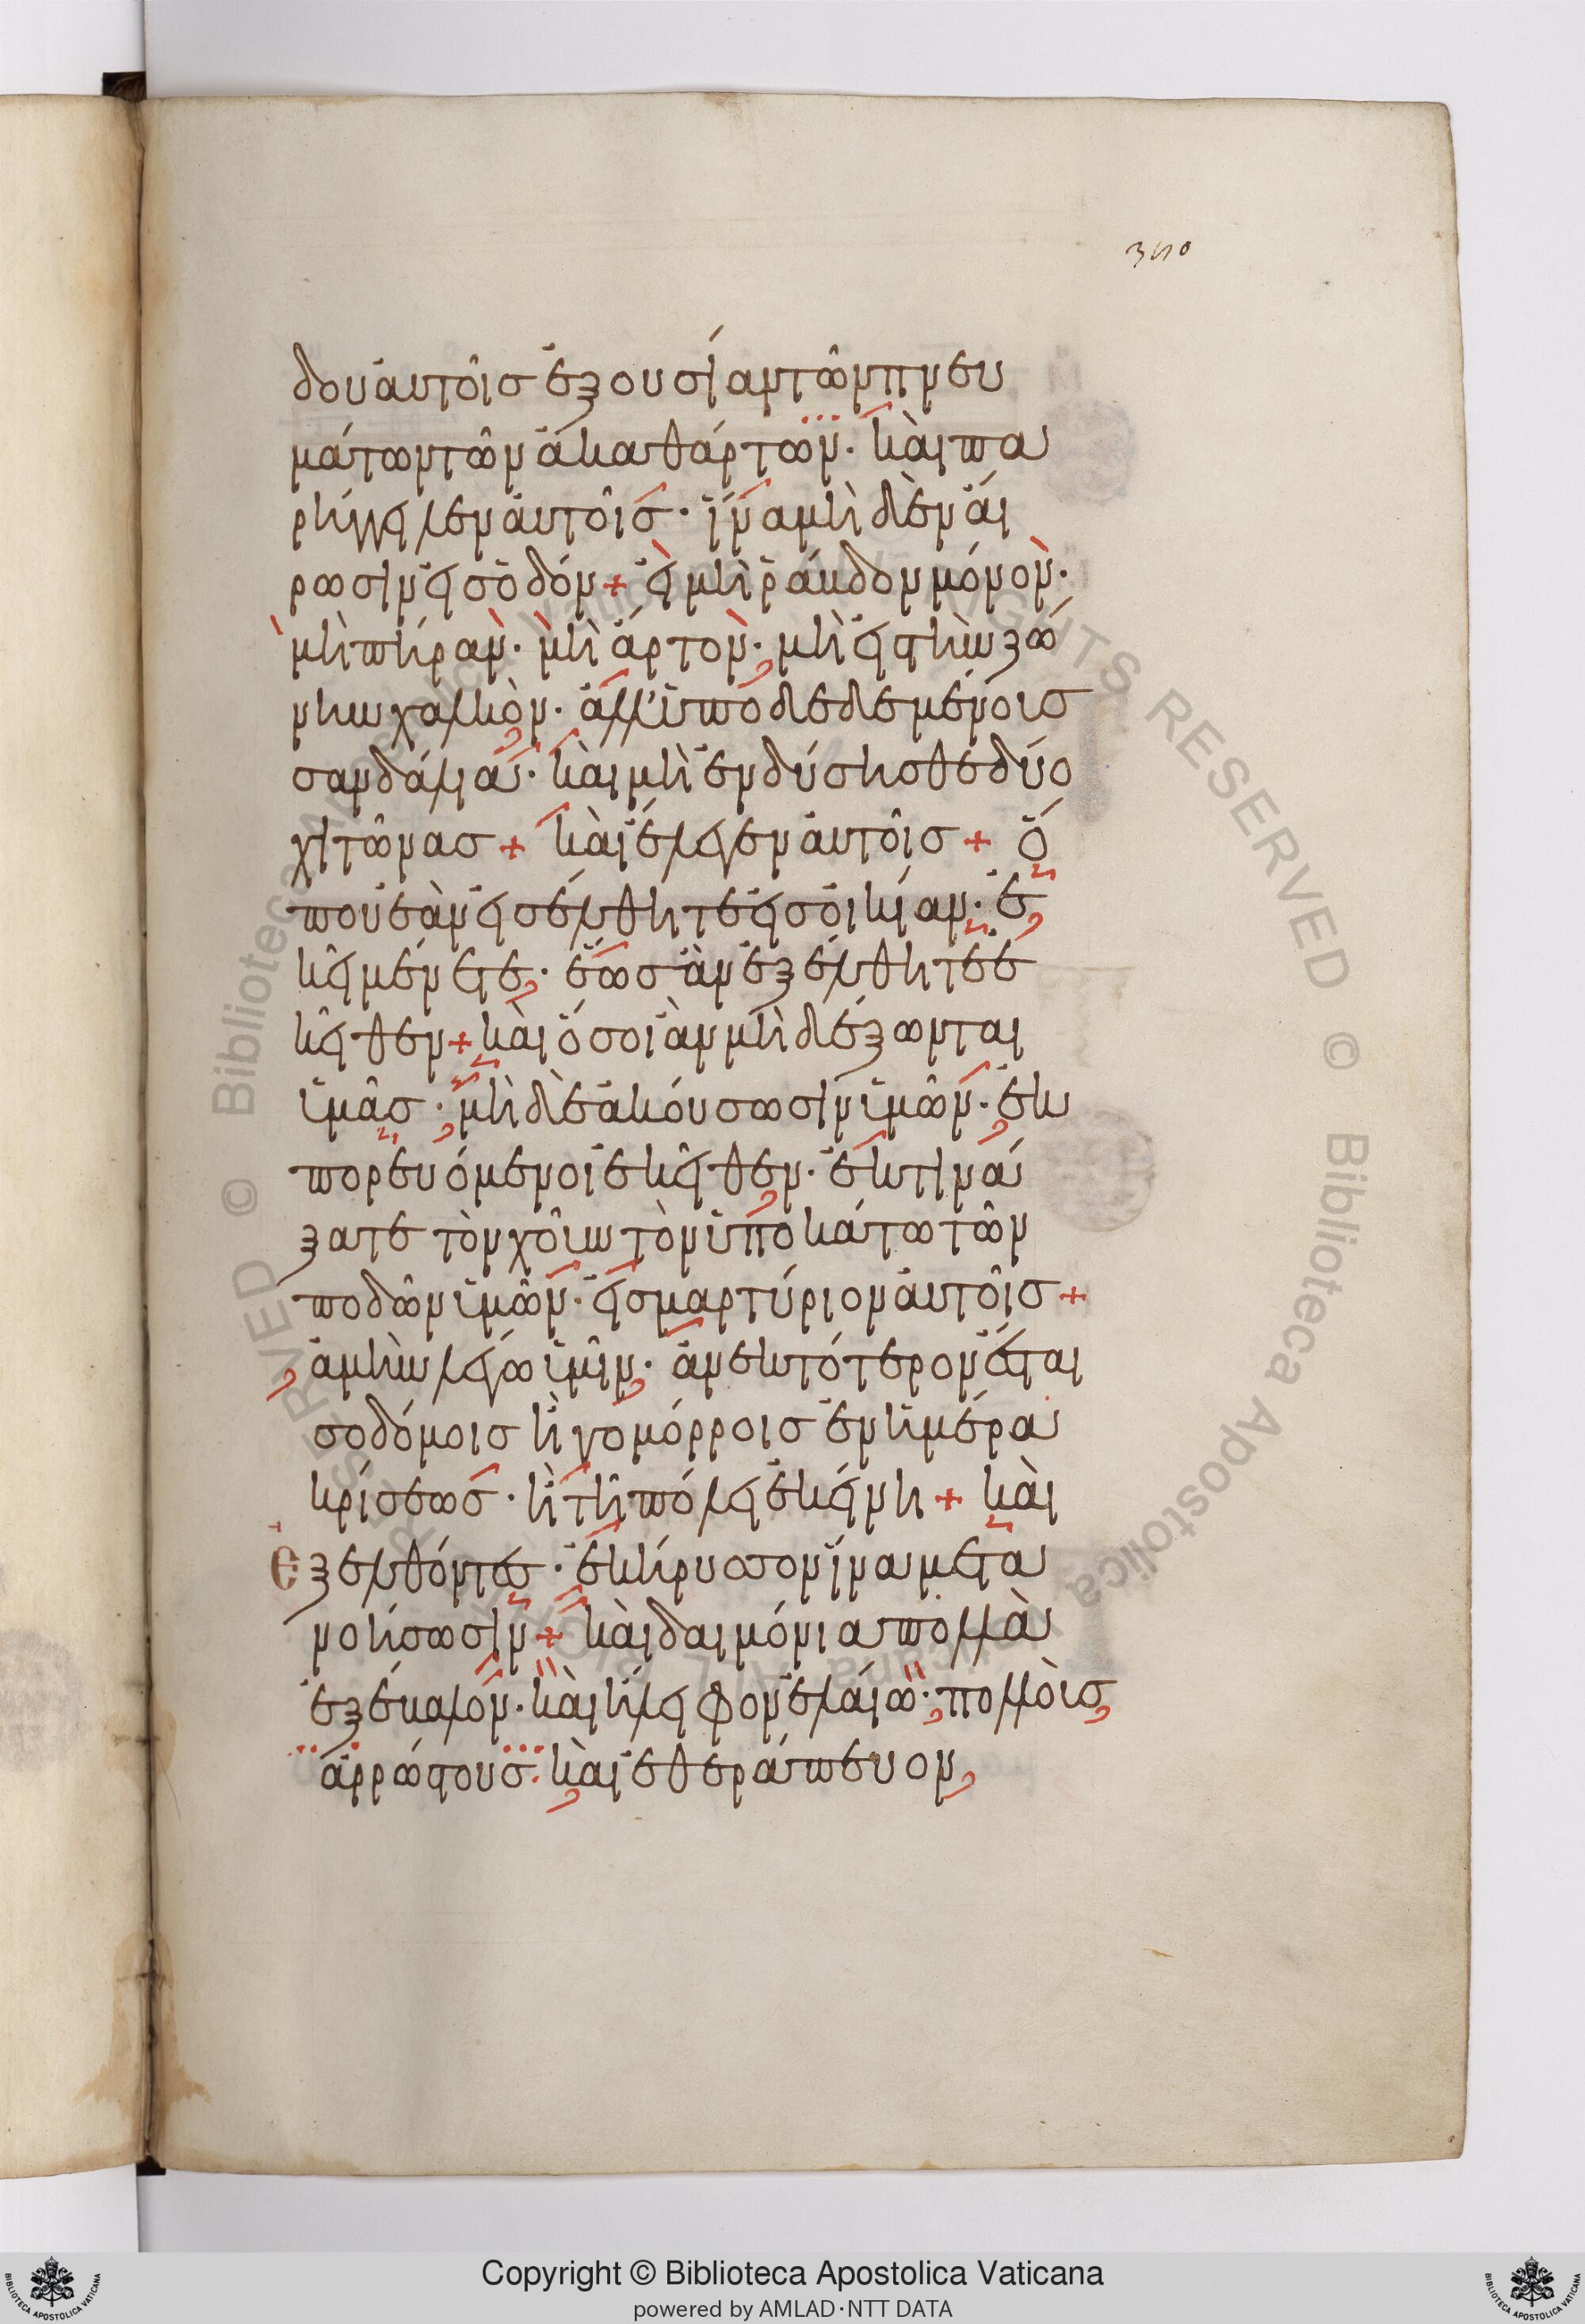 340
δου αὐτοῖσ ἐξουσίαν τῶν πνευ
μάτων τῶν ἀκαθάρτων· καὶ πα
ρήγγειλεν αὐτοῖσ· ἵνα μὴδὲν αἴ
ρωσιν εἰσ ὁδόν + εἰ μὴ ῥάβδον μόνον·
μὴ πήραν· μὴ ἄρτον· μὴ εἰς τὴν ζώ
νην χαλκὸν· ἀλλ' ὑποδεδεμένοισ
σανδάλια· καὶ μὴ ἐνδύσησθε δύο
χιτῶνασ + καὶ ἔλεγεν αὐτοῖσ + ὅ
που ἐὰν εἰσέλθητε εἰσ οἰκίαν· ἐ
κεῖ μένετε· ἕωσ ἂν ἐξέλθητε ἐ
κεῖθεν + καὶ ὅσοι ἂν μὴ δέξωνται
ὑμᾶσ· μὴδὲ ἀκούσωσιν ὑμῶν· ἐκ
πορευόμενοι ἐκεῖθεν· ἐκτινά
ξατε τὸν χοῦν τὸν ὑποκάτω τῶν
ποδῶν ὑμῶν· εἰσ μαρτύριον αὐτοῖσ +
ἀμὴν λέγω ὑμῖν· ἀνεκτότερον ἔσται
σοδόμοισ ἢ γομόρροισ ἐν ἡμέρα
κρίσεωσ· ἢ τῆ πόλει ἐκείνη + καὶ
ἐξελθόντες· ἐκήρυσσον ἵνα μετα
νοήσωσιν + καὶ δαιμόνια πολλὰ
ἐξέβαλον· καὶ ἤλειφον ἐλαίω· πολλοὺσ
ἀρρώστουσ· καὶ ἐθεράπευον
Copyright © Biblioteca Apostolica Vaticana
powered by AMLAD·NTT DATA